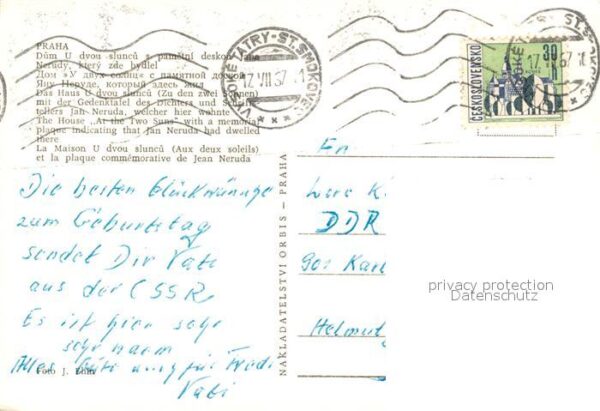 PRAHA
Dům U dvou slunců s pamětní deskou Jana
Nerudy, který zde bydlel
Дом «У двух солнц» с памятной доской
Яну Неруде, который здесь жил
Das Haus U dvou slunců (Zu den zwei Sonnen)
mit der Gedenktafel des Dichters und Schrift-
tellers Jan Neruda, welcher hier wohnte
The House „At the Two Suns" with a memorial
plaque indicating that Jan Neruda had dwelled
there
La Maison U dvou slunců (Aux deux soleils)
et la plaque commémorative de Jean Neruda
VYSOKÉ TATRY - ST. SMOKOVEC
17. VII. 67. -1
ČESKOSLOVENSKO
30 h
NAKLADATELSTVÍ ORBIS - PRAHA
Die besten Glückwünsche
zum Geburtstag
sendet Dir Vati
aus der ČSSR
Es ist hier sehr
sehr warm
Alles Gute auch für
Vati
Foto J. Ehm
K.
DDR
901 Karl
Helmut
privacy protection
Datenschutz